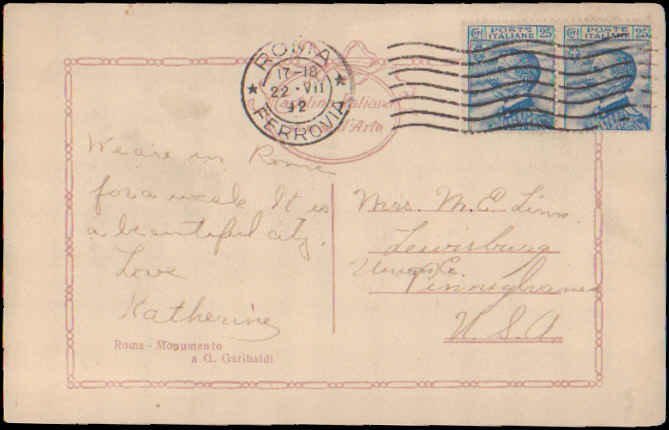 ROMA
17-18
22 · VII
FERROVIA
POSTE
ITALIANE
25
POSTE
ITALIANE
25
Cartolina Italiana
d'Arte
We are in Rome
for a week. It is
a beautiful city.
Love
Katherine
Roma - Monumento
a G. Garibaldi
Mrs. M. E. Linn.
Lewisburg
Union Co.
Pennsylvania
U.S.A.